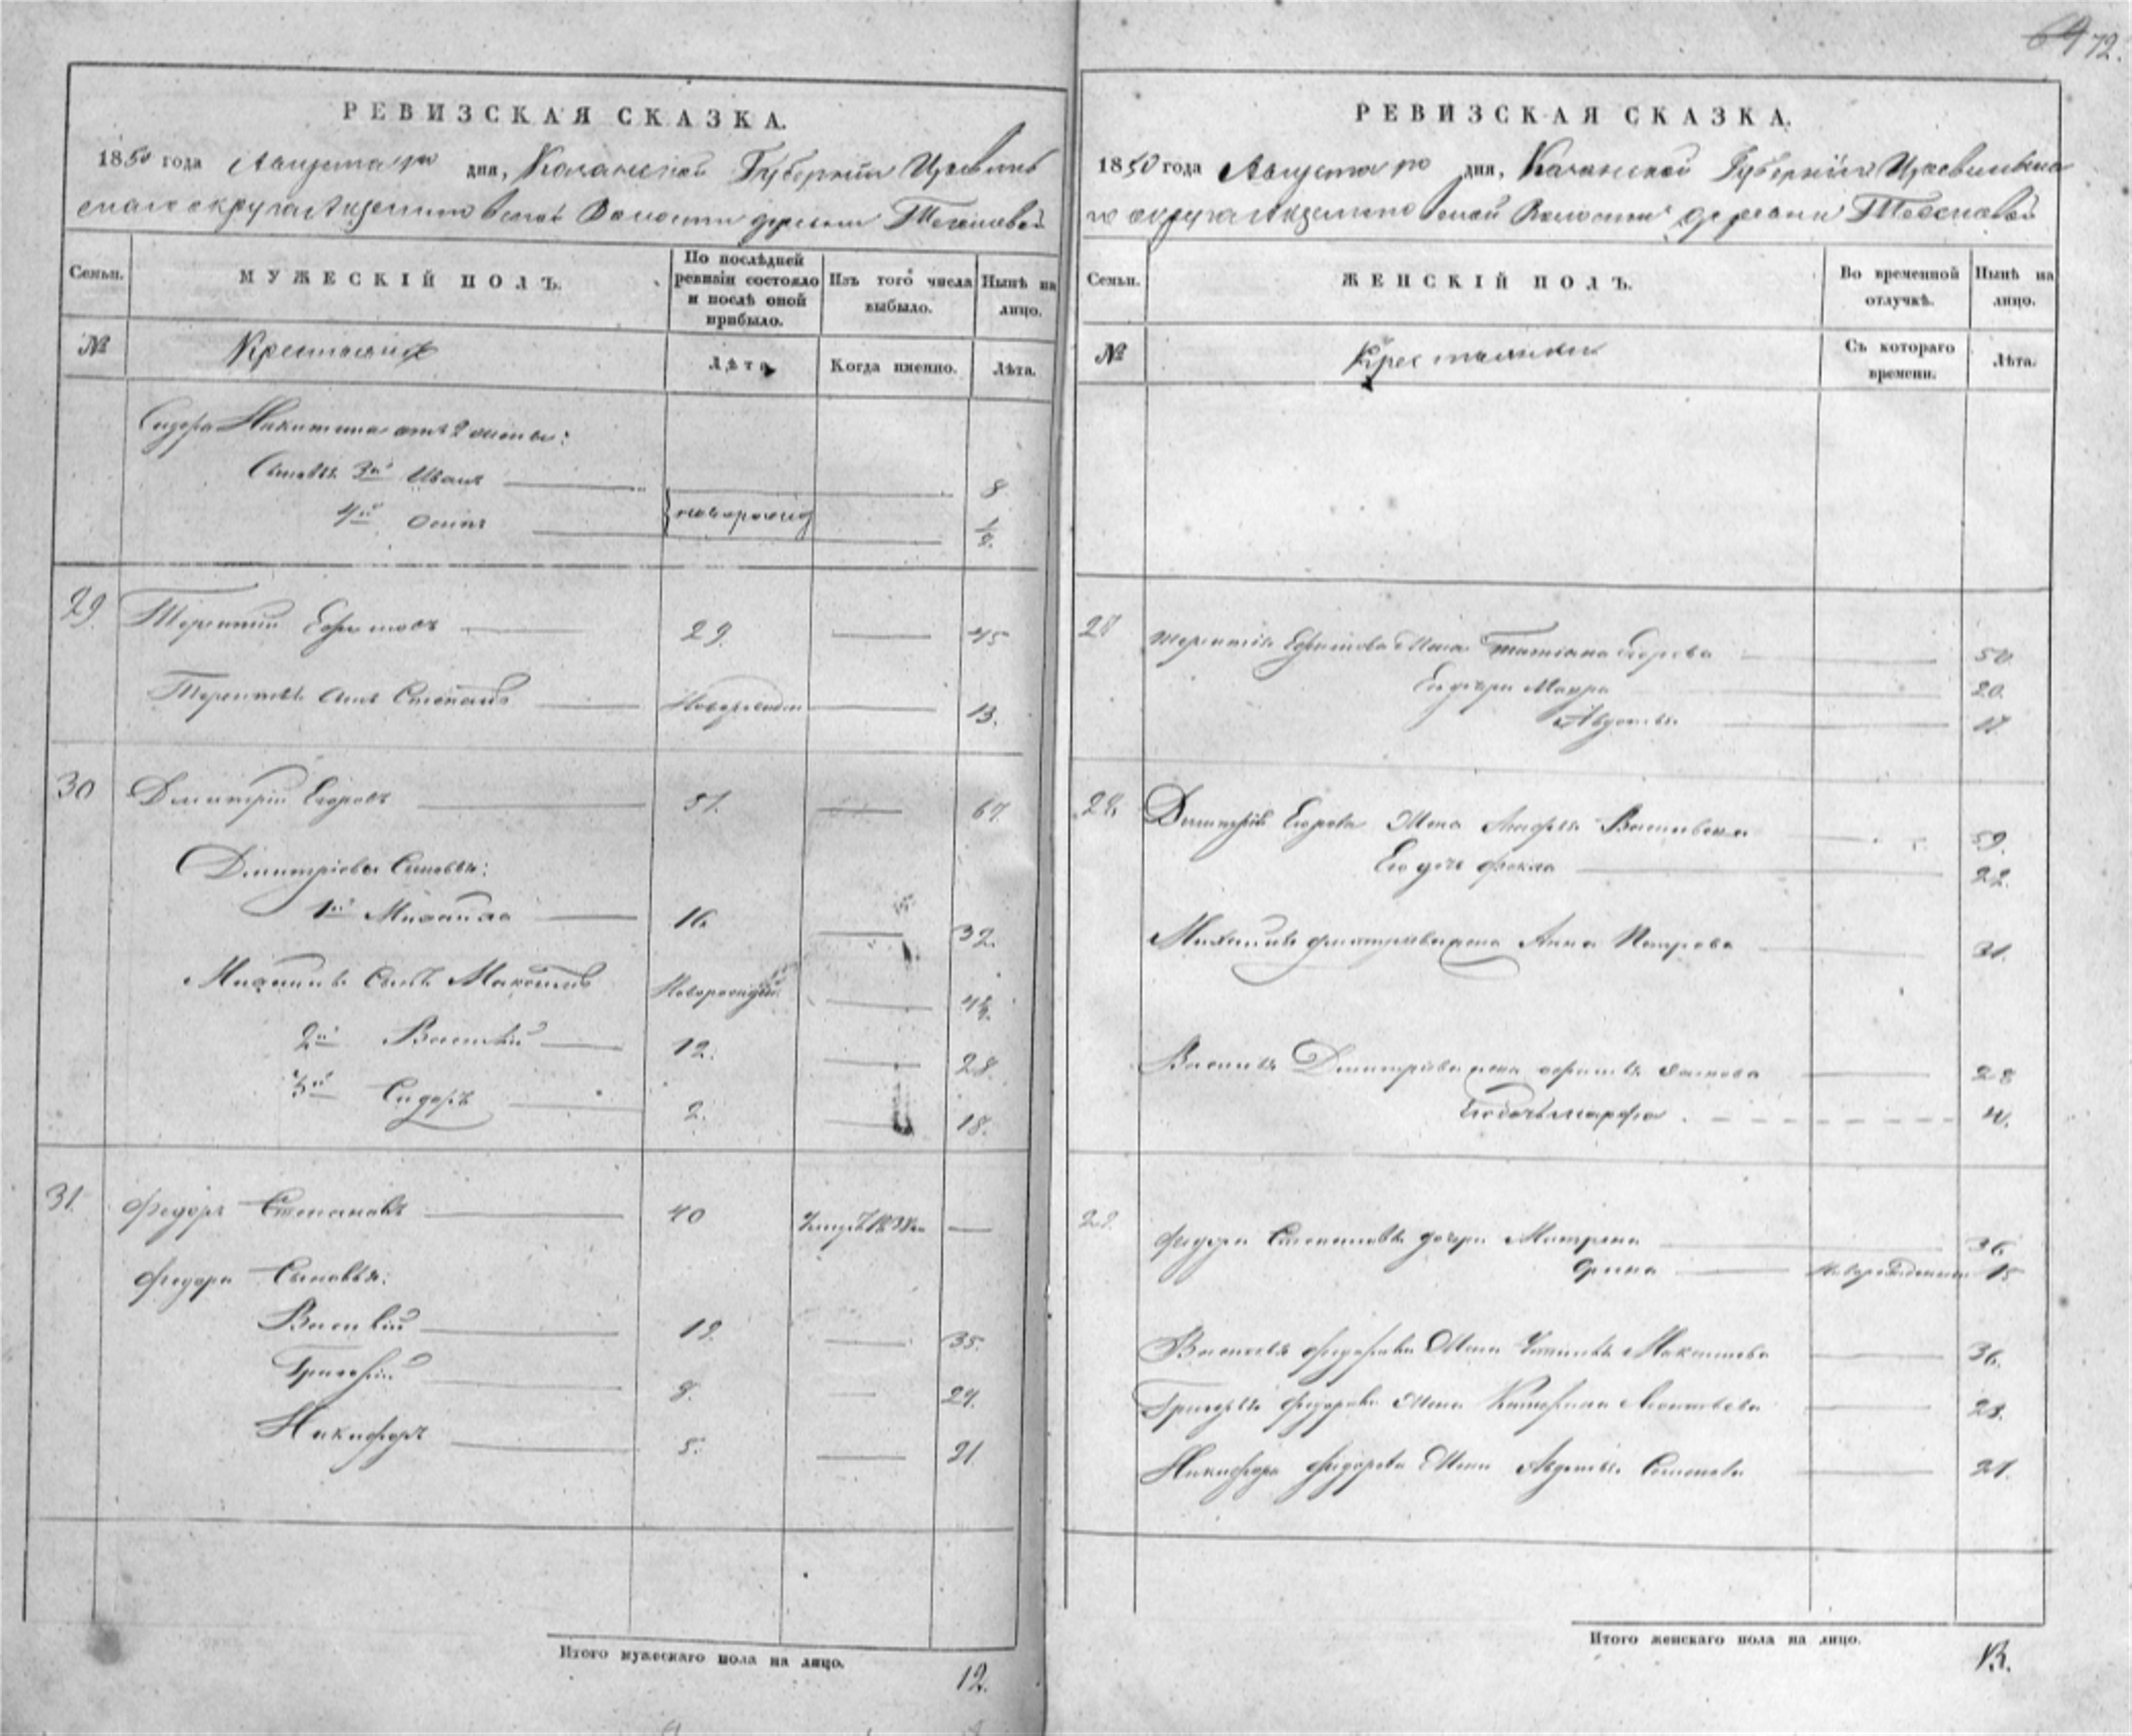 69 72.
РЕВИЗСКАЯ СКАЗКА.
1850 года Августа дня, Казанской Губернии Цивиль
скаго округа волости деревни
Семьи. МУЖЕСКІЙ ПОЛЪ. По послѣдней ревизіи состояло и послѣ оной прибыло. Изъ того числа выбыло. Нынѣ на лицо.
№ Крестьянъ Лѣта Когда именно. Лѣта.
Сидора Никитина отъ 2 жены:
Сыновья 3й Иванъ 8
4й Осипъ новорожд 1/2
29. Терентий Ефимовъ 29. 45
Терентья сынъ Степанъ Новорожден 13.
30 Дмитрій Егоровъ 51. 67.
Дмитріевы Сыновья:
1й Михайла 16. 32.
Михайлы Сынъ Новорожден
2й Василій 12. 28.
3й Сидоръ 2. 18.
31. Федоръ Степановъ 40
Федора Сыновья:
Василій 19. 35.
Григорій 8. 24.
Никифоръ 5. 21
Итого мужескаго пола на лицо.
12.
РЕВИЗСКАЯ СКАЗКА.
1850 года Августа дня, Казанской Губерніи Цивильска
го округа волости деревни
Семьи. ЖЕНСКІЙ ПОЛЪ. Во временной отлучкѣ. Нынѣ на лицо.
№ Крестьянки Съ котораго времени. Лѣта.
Терентія Ефимова Жена Татіана Егорова 50
Его дочери Мавра 20.
Авдотья 17
Дмитрія Егорова Жена Васильева 59.
Его дочь Фекла 22.
Михайлы Дмитріева жена Анна Петрова 31.
Василья Дмитріева жена 28
Его дочь Марфа 4.
Федора Степанова дочери Матрена 36.
Новорожденная 15
Василья Федорова Жена Максимова 36.
Григорья Федорова Жена Катерина 28.
Никифора Федорова Жена Авдотья Семенова 21.
Итого женскаго пола на лицо.
13.